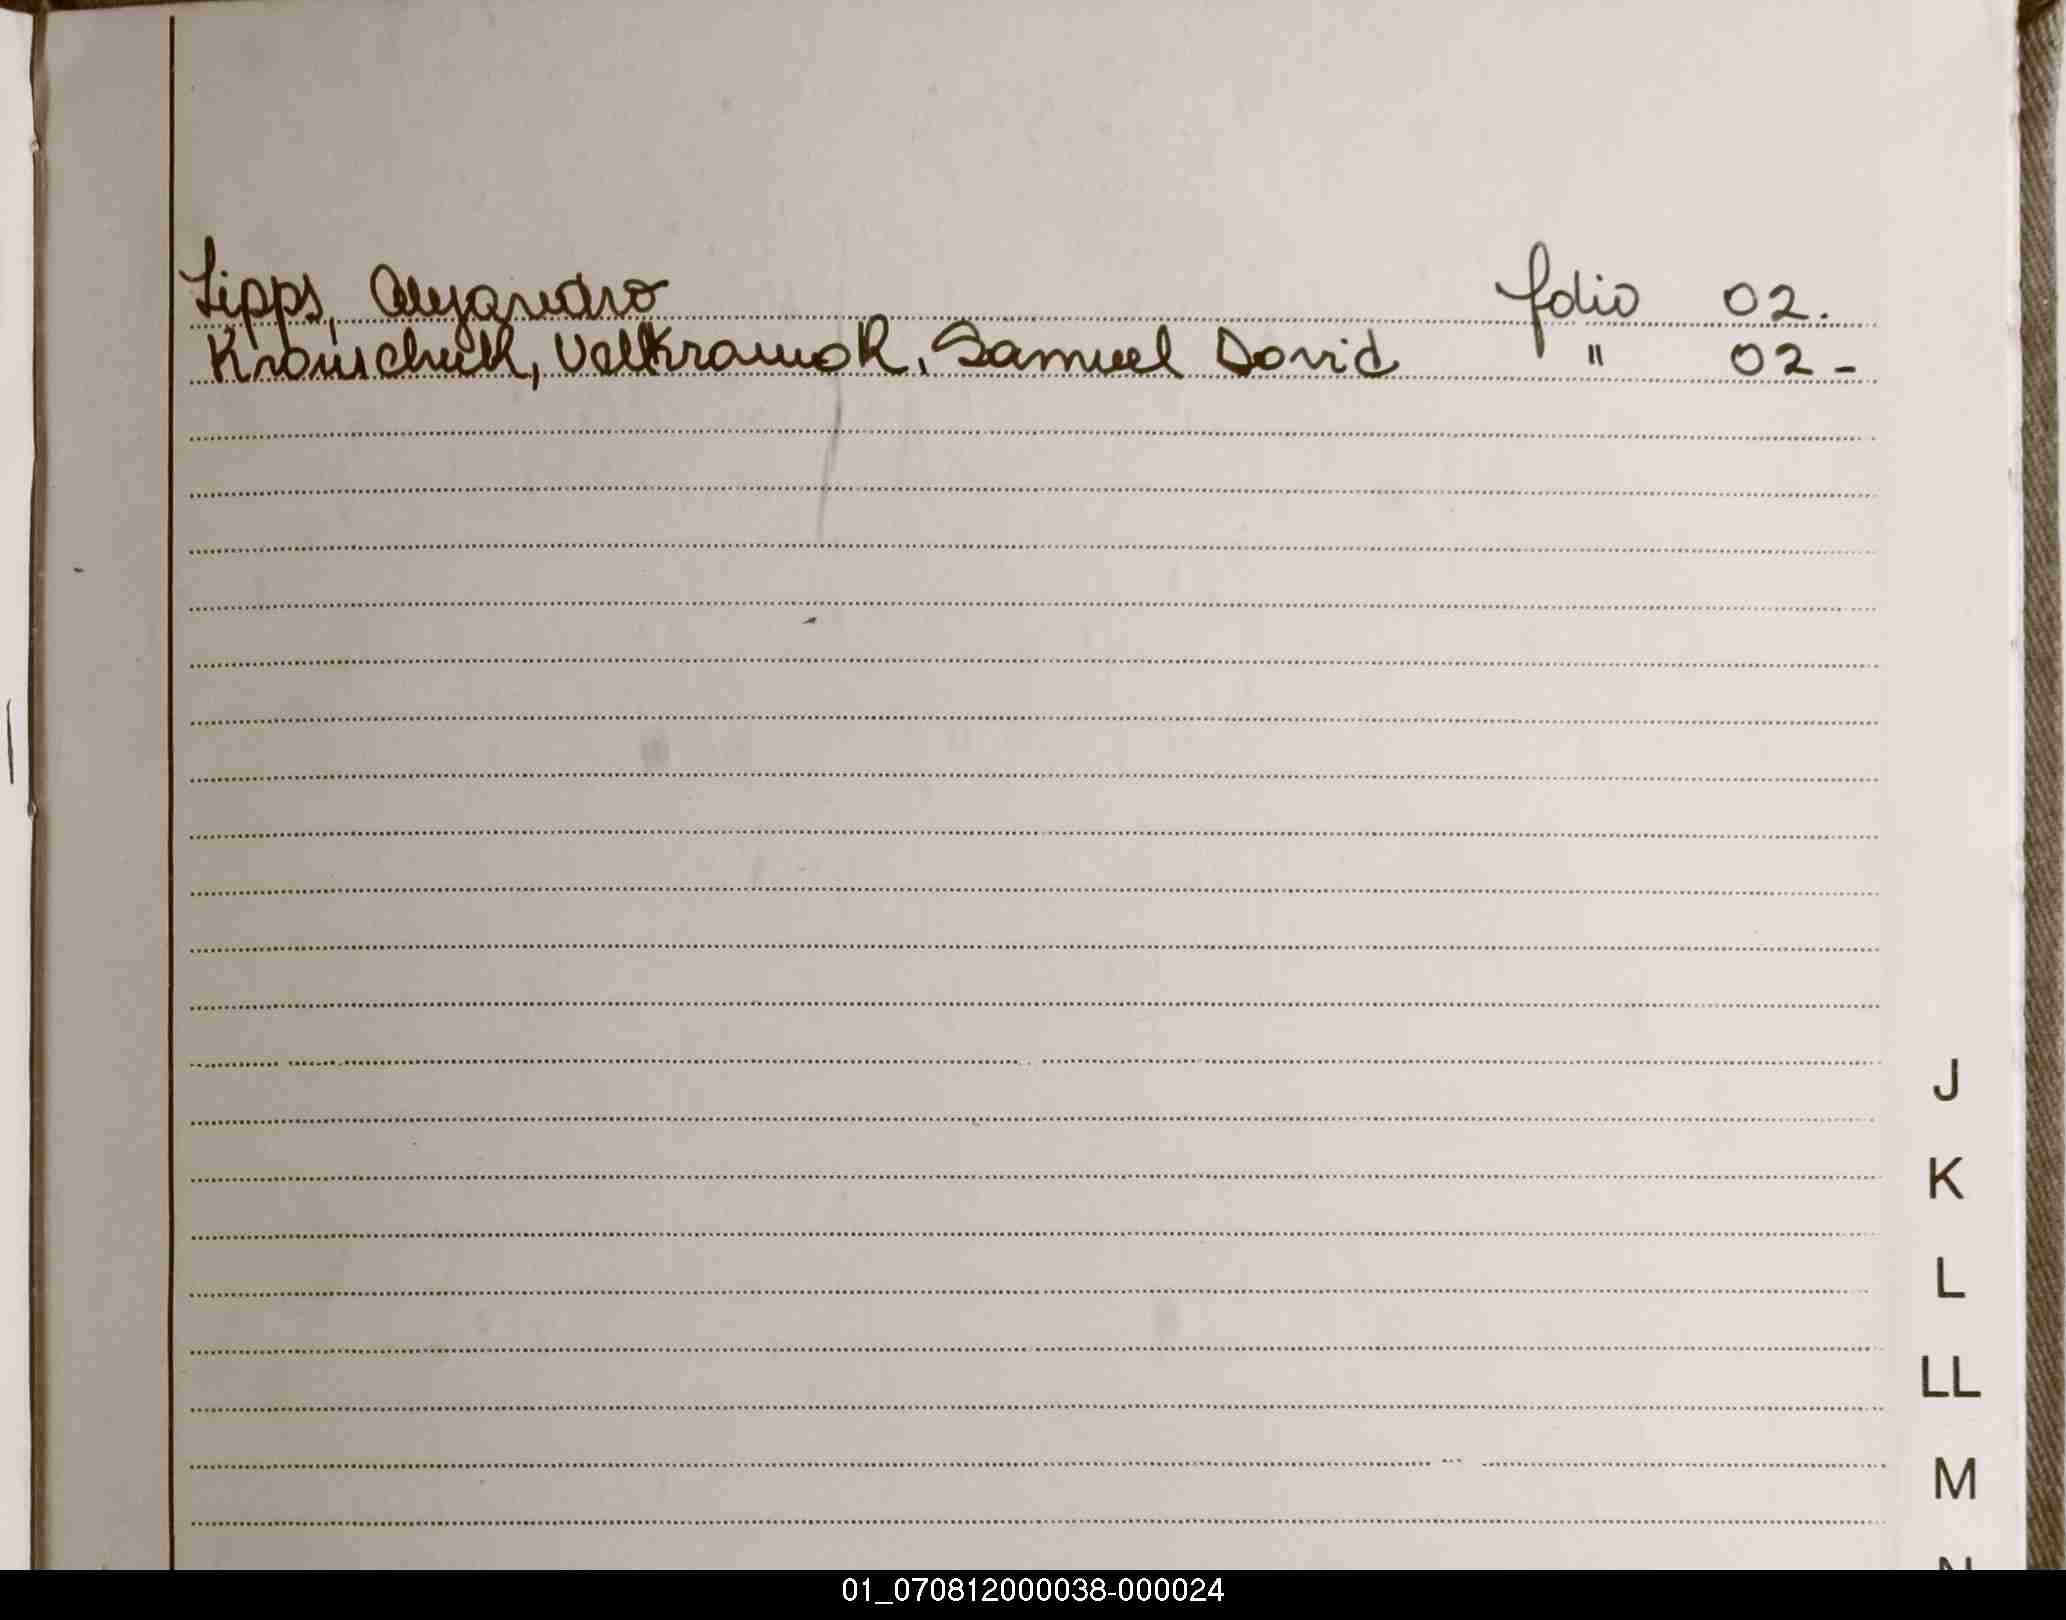 Lipps, Alejandro folio 02.
Samuel David " 02-
J
K
L
LL
M
01_070812000038-000024